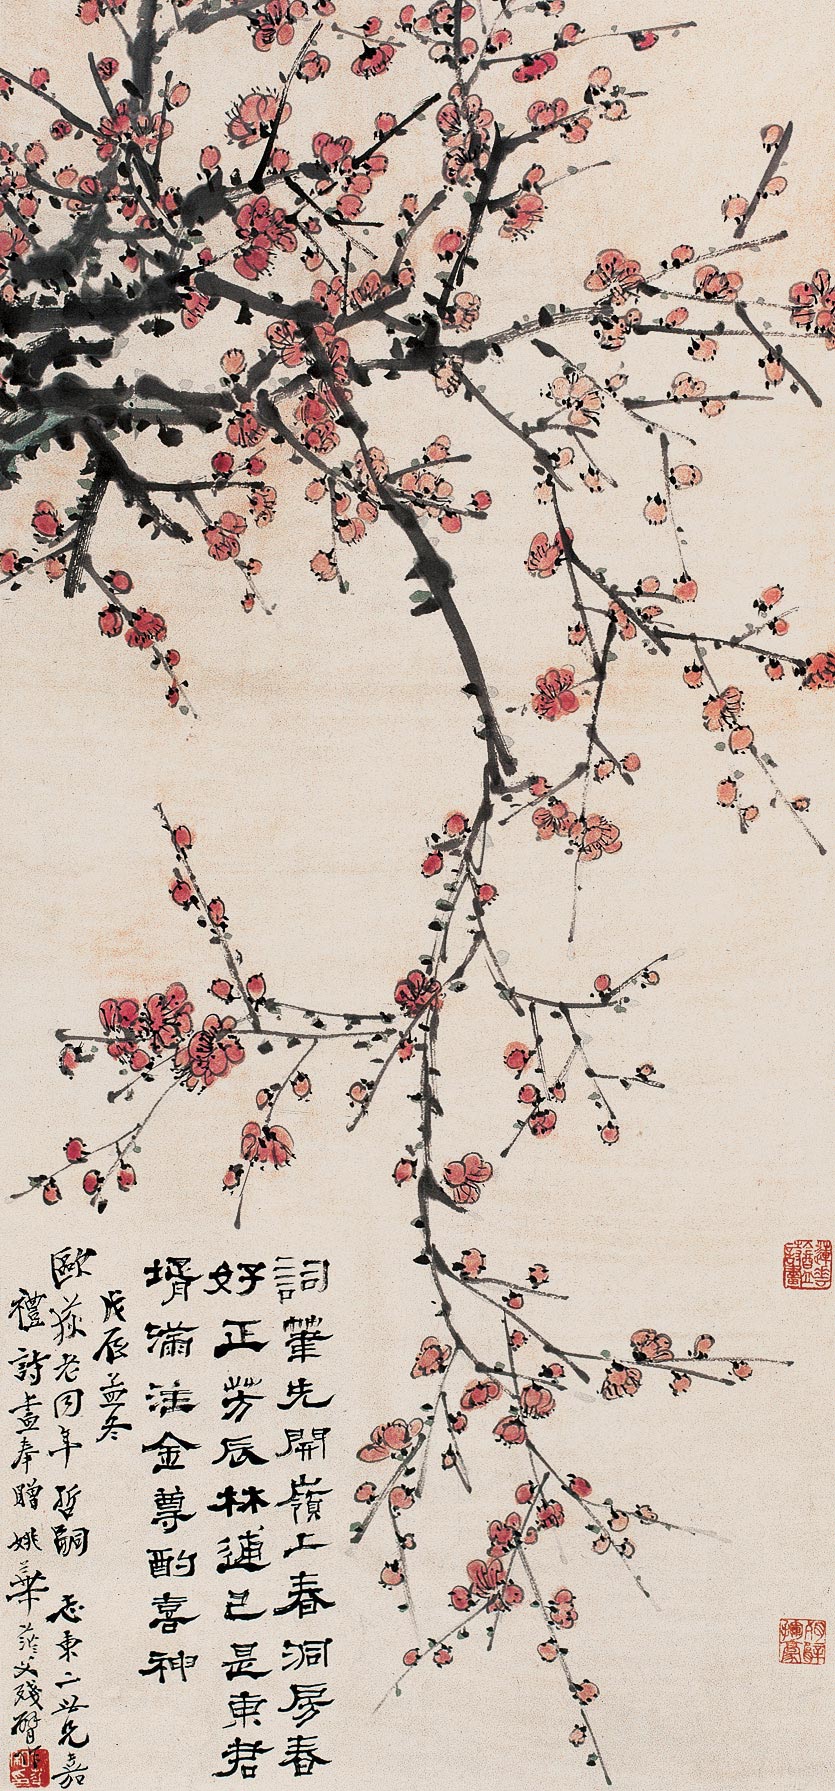 詞輩先開嶺上春洞房春
好正芳辰林逋已是東君
壻滿注金尊酌喜神
戊辰孟冬
歐荻老同年哲嗣志東二世兄嘉
禮詩畫奉贈姚華茫父殘臂